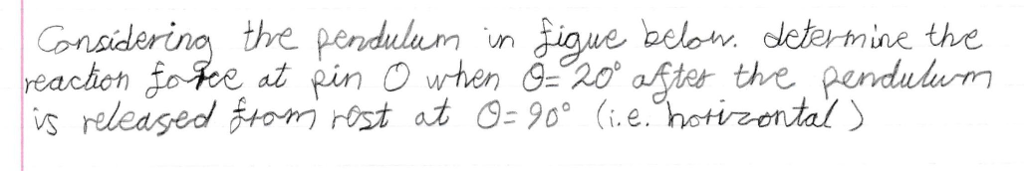 Considering the pendulum in figue below. determine the
reaction force at pin O when θ=20° after the pendulum
is released from rest at θ=90° (i.e. horizontal)